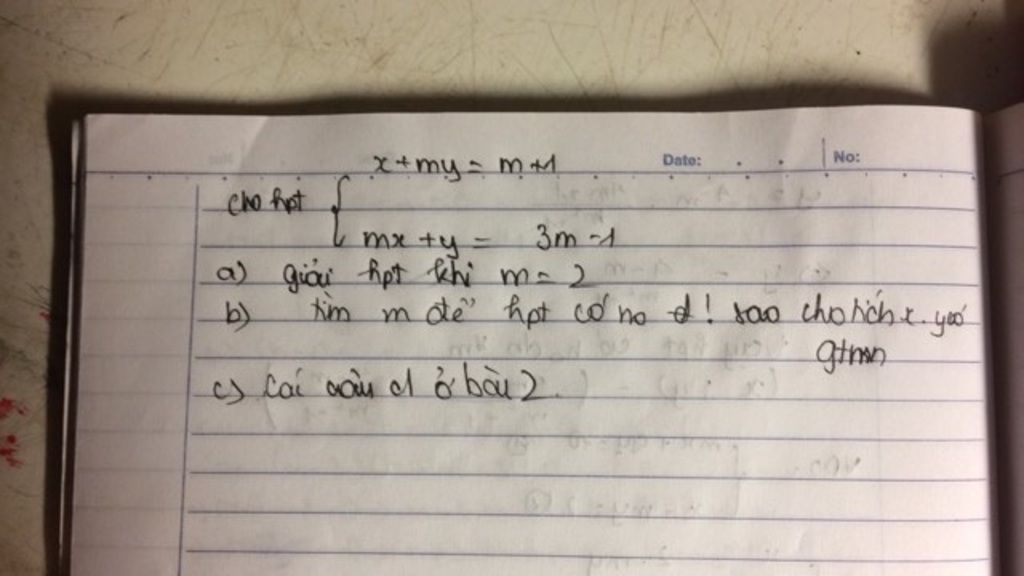 x+my = m+1
Date: No:
cho hpt {
mx +y = 3m-1
a) giải hpt khi m = 2
b) tìm m để hpt có no d! sao cho tích x.y có
gtnn
c) câu d ở bài 2.